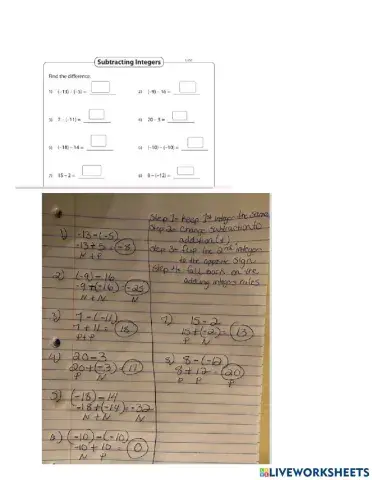 Subtracting Integers
Find the difference.
1) (-13) - (-5) =
2) (-9) - 16 =
3) 7 - (-11) =
4) 20 - 3 =
5) (-18) - 14 =
6) (-10) - (-10) =
7) 15 - 2 =
8) 8 - (-12) =
Step 1- Keep 1st integer the same
Step 2- Change subtraction to
addition (+)
Step 3- Flip the 2nd integer
to the opposite sign.
Step 4- fall back on the
adding integers rules
1) -13-(-5)
-13+5=-8
N+P
2) (-9)-16
-9+(-16)=-25
N+N N
3) 7-(-11)
7+11=18
P+P
4) 20-3
20+(-3)=17
P N
5) (-18)-14
-18+(-14)=-32
N+N N
6) (-10)-(-10)
-10+10=0
N P
7) 15-2
15+(-2)=13
P N
8) 8-(-12)
8+12=20
P P P
LIVEWORKSHEETS